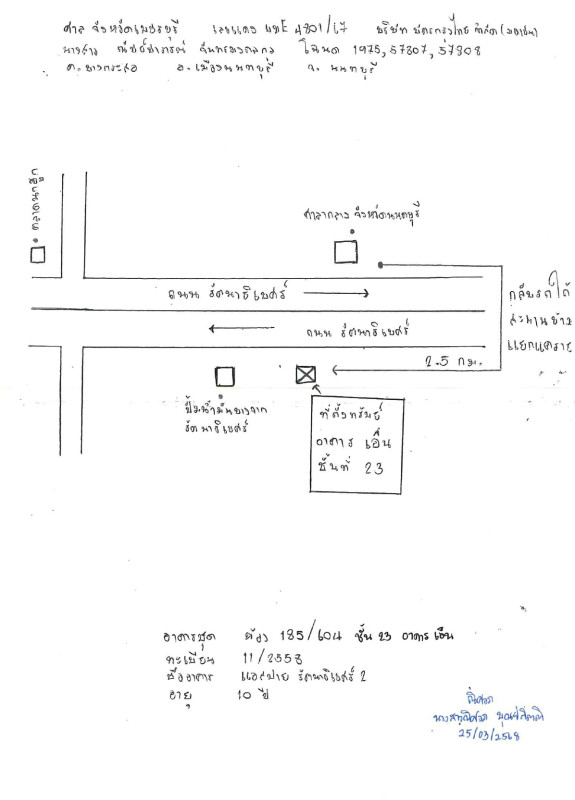 ศาล จังหวัดนนทบุรี เลขแดง ผบE 4801/67 บริษัท บัตรกรุงไทย จำกัด (มหาชน)
นางสาว โฉนด 1975, 57807, 57808
ต. บางกระสอ อ. เมืองนนทบุรี จ. นนทบุรี
ศาลากลาง จังหวัดนนทบุรี
ถนน รัตนาธิเบศร์
ถนน รัตนาธิเบศร์
กลับรถใต้
สะพานข้าม
แยกแคราย
2.5 กม.
ปั๊มน้ำมันบางจาก
รัตนาธิเบศร์
ที่ตั้งทรัพย์
อาคาร เอ็น
ชั้นที่ 23
อาคารชุด ห้อง 185/604 ชั้น 23 อาคาร เอ็น
ทะเบียน 11/2558
ชื่ออาคาร แอสปาย รัตนาธิเบศร์ 2
อายุ 10 ปี
25/03/2568